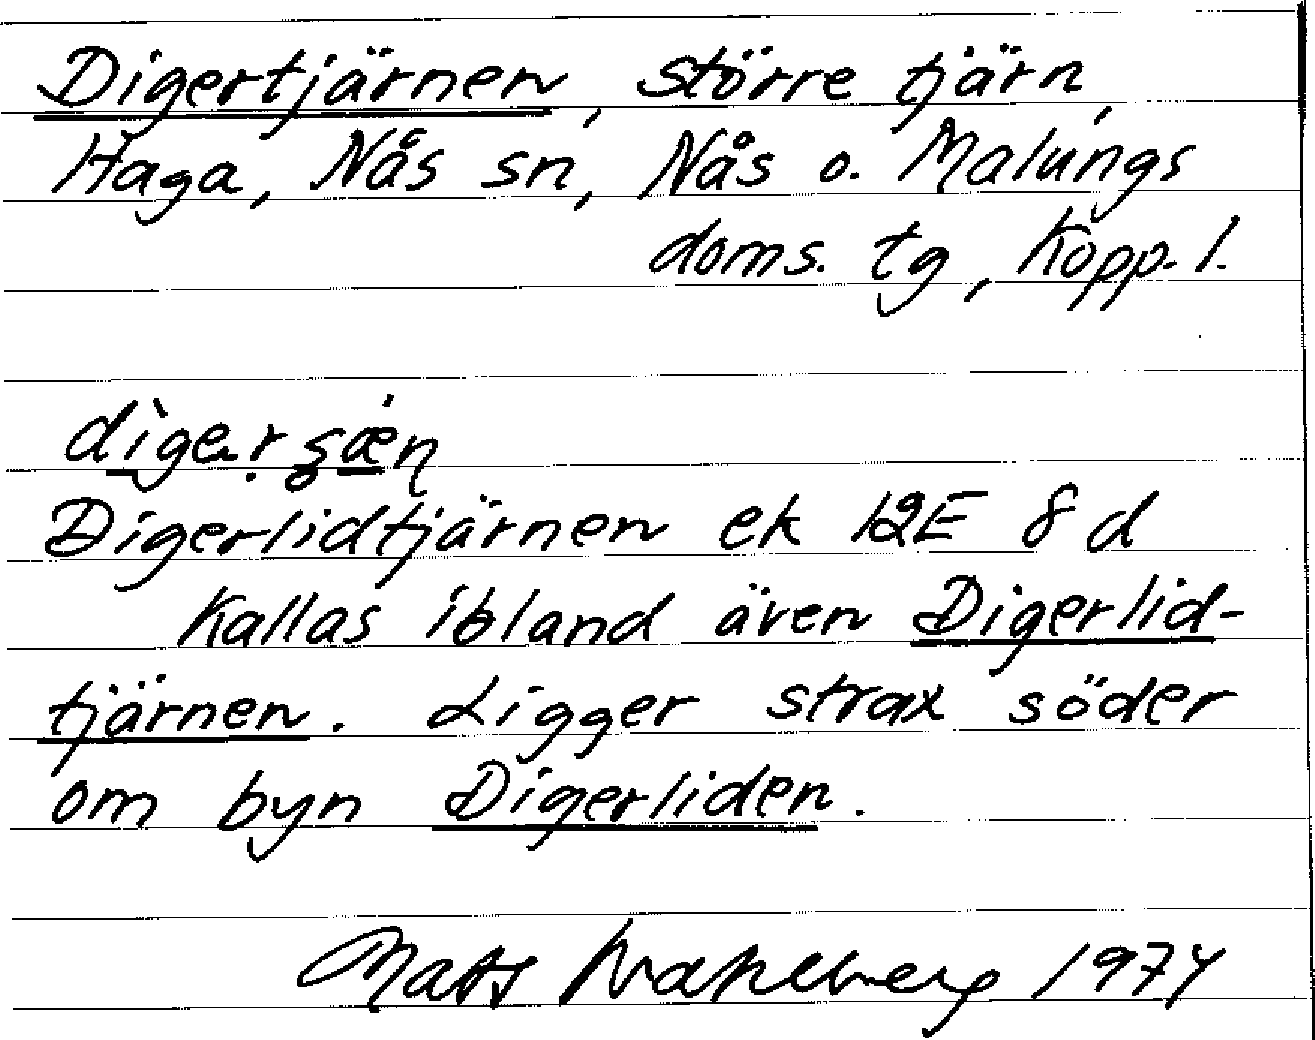 Digertjärnen, större tjärn,
Haga, Nås sn, Nås o. Malungs
doms. tg, Kopp. l.
Digerlidtjärnen ek 12E 8 d
Kallas ibland även Digerlid-
tjärnen. Ligger strax söder
om byn Digerliden.
Mats Wahlberg 1974